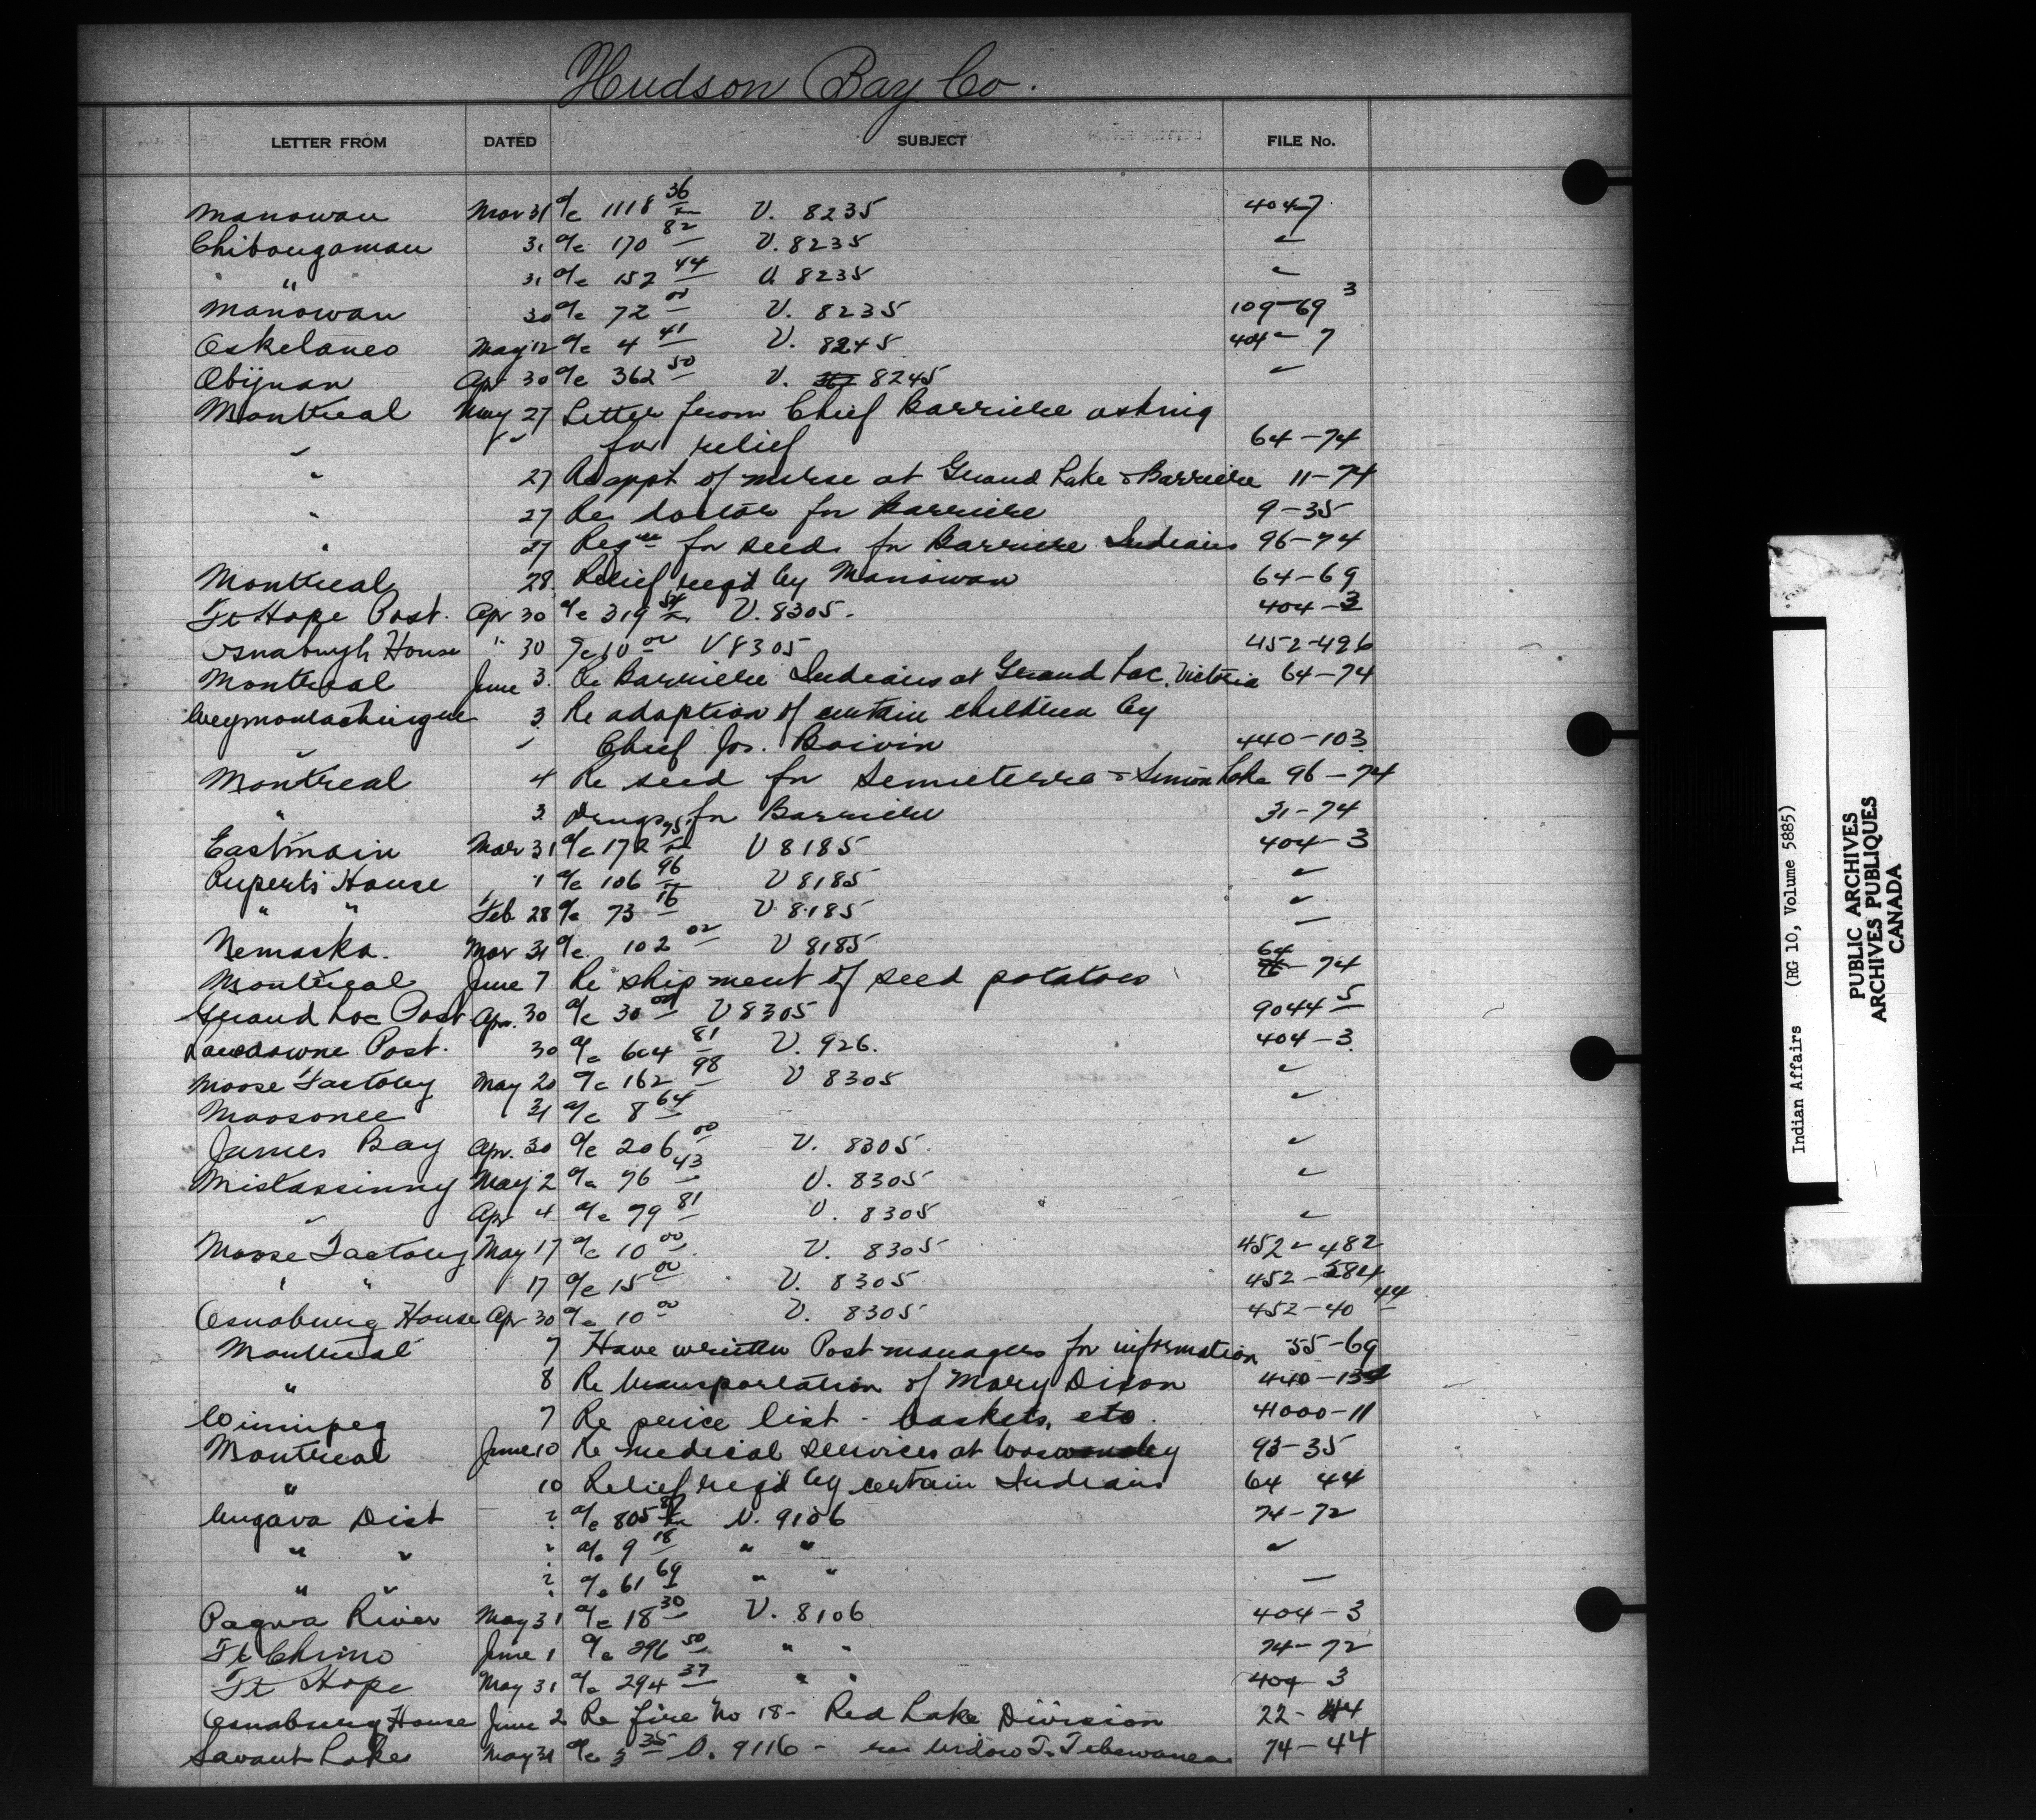 Hudson Bay Co.
LETTER FROM DATED SUBJECT FILE No.
Manowan Mar 31 a/c 1118 36 V. 8235 404-7
Chibougamau 31 a/c 170 82 V. 8235 "
" 31 a/c 152 44 V. 8235 "
Manowan 30 a/c 72 00 V. 8235 109-69 3
Oskelaneo May 12 a/c 4 41 V. 8245 404-7
Obijuan Apr 30 a/c 362 50 V. 8245 "
Montreal May 27 Letter from Chief Barriere asking
" " for relief 64-74
" 27 Re appt of nurse at Grand Lake & Barriere 11-74
" 27 Re doctor for Barriere 9-35
" 27 Reqn for seed for Barriere Indians 96-74
Montreal 28 Relief reqd by Manowan 64-69
Ft Hope Post. Apr 30 a/c 319 54 V. 8305. 404-3
Osnaburgh House " 30 a/c 10 00 V 8305 452-426
Montreal June 3. Re Barriere Indians at Grand Lac. Victoria 64-74
Weymontachingue 3. Re adoption of certain children by
" " Chief Jos. Boivin 440-103
Montreal 4 Re seed for Senneterre & Simon Lake 96-74
" 3 Drugs for Barriere 31-74
Eastmain Mar 31 a/c 172 75 V 8185 404-3
Ruperts House 1 a/c 106 96 V 8185 "
" " Feb 28 a/c 73 16 V 8185 "
Nemaska. Mar 31 a/c. 102 02 V 8185 "
Montreal June 7 Re shipment of seed potatoes 64-74
Grand Lac Post Apr. 30 a/c 30 00 V 8305 9044 5
Lansdowne Post. 30 a/c 604 81 V. 926. 404-3.
Moose Factory May 20 a/c 162 98 V 8305 "
Moosonee 31 a/c 8 64 "
James Bay Apr. 30 a/c 206 00 V. 8305. "
Mistassinny May 2 a/c 76 43 V. 8305 "
" Apr 4 a/c 79 81 V. 8305 "
Moose Factory May 17 a/c 10 00 V. 8305 452-482
" " 17 a/c 15 00 V. 8305 452-584
Osnaburg House Apr 30 a/c 10 00 V. 8305 452-40 44
Montreal 7 Have written Post managers for information 55-69
" 8 Re transportation of Mary Dixon 440-
Winnipeg 7 Re price list - baskets, etc. 41000-11
Montreal June 10 Re medical services at 93-35
" 10 Relief reqd by certain Indians 64 44
Ungava Dist ? a/c 805 V. 9106 74-72
" " ? a/c 9 18 " " "
" " ? a/c 61 69 " " "
Pagwa River May 31 a/c 18 30 V. 8106 404-3
Ft Chimo June 1 a/c 296 50 " " 74-72
Ft Hope May 31 a/c 294 37 " " 404 3
Osnaburg House June 2 Re fire No 18- Red Lake Division 22-44
Savant Lake May 31 a/c 3 35 V. 9116 - re widow T. 74-44
Indian Affairs (RG 10, Volume 5885)
PUBLIC ARCHIVES
ARCHIVES PUBLIQUES
CANADA